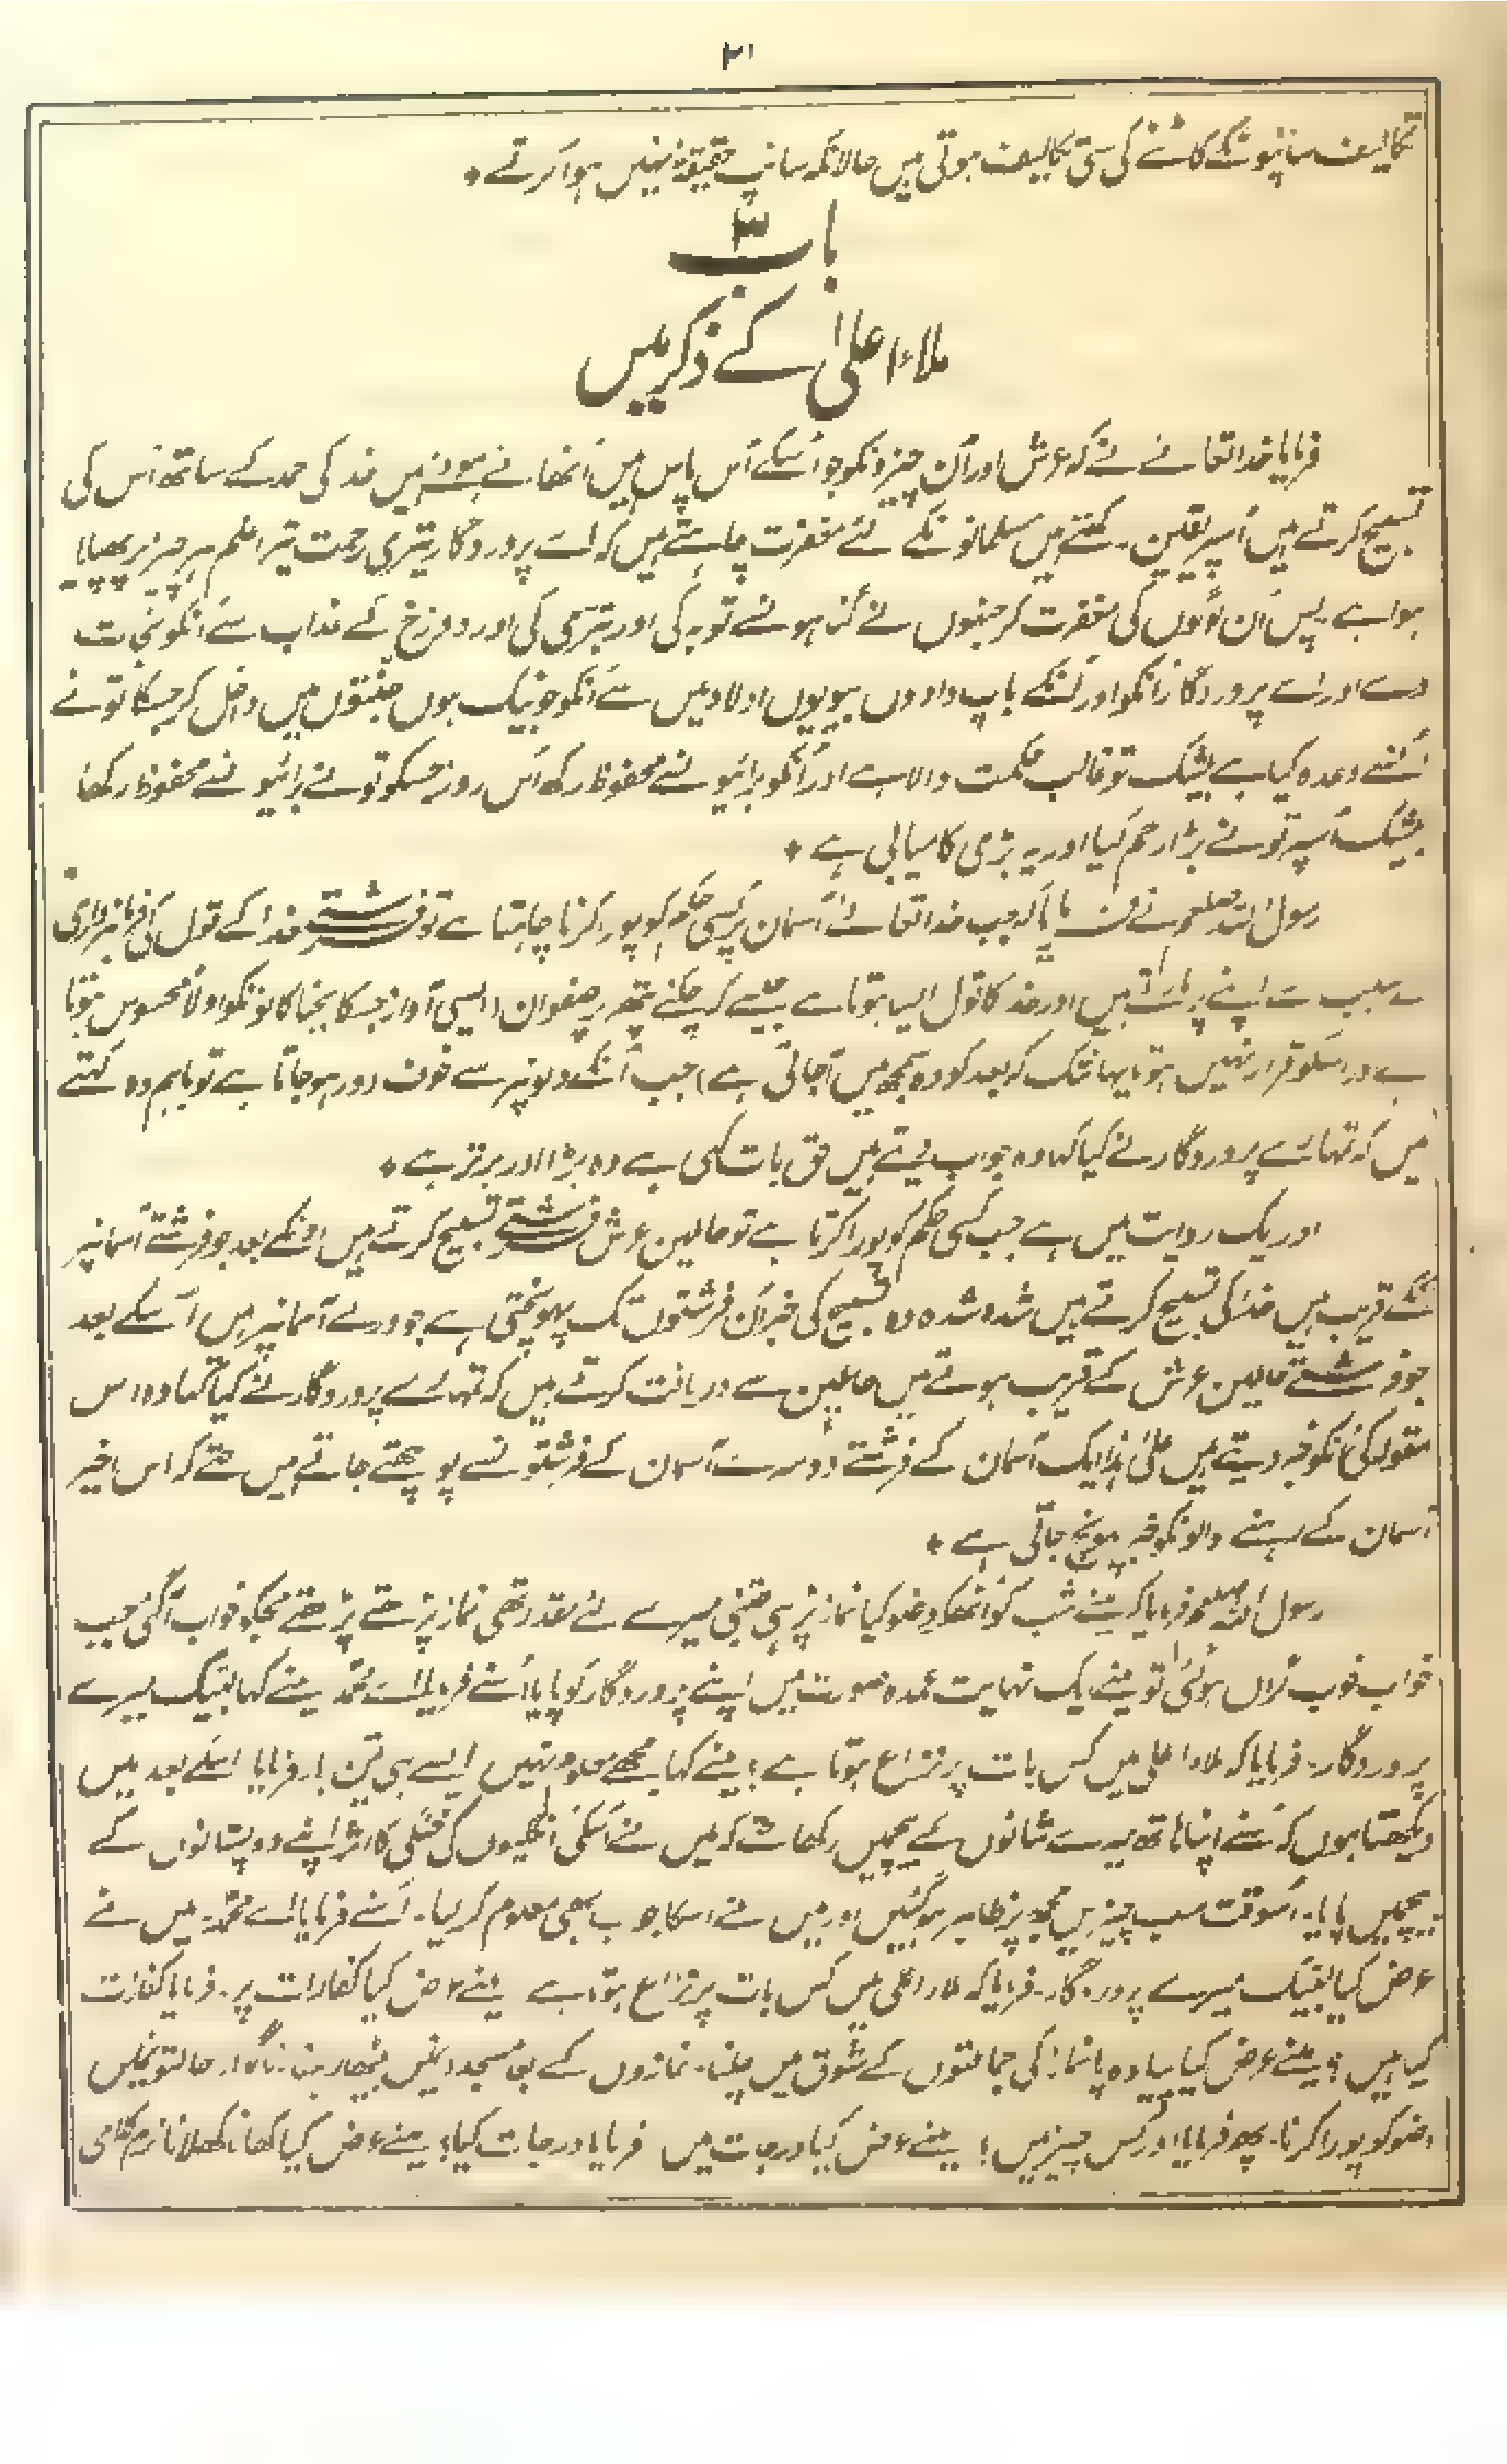 ۲۱
تکالیف سانپونکے کاٹنے کی سی تکالیف ہوتی ہیں حالانکہ سانپ حقیقۃً نہیں ہوا کرتے *
باب ۳
ملاء اعلیٰ کے ذکر میں
فرمایا خدا تعالے نے کہ عرش اور اُن چیزونکو جو اُسکے آس پاس ہیں اُٹھانے ہوئے ہیں خدا کی حمد کے ساتھ اُس کی
تسبیح کرتے ہیں اُسپر یقین رکھتے ہیں مسلمانونکے لئے مغفرت چاہتے ہیں کہ اے پروردگار تیری رحمت تیرا علم ہر چیز پر پھیلا
ہوا ہے پس اُن لوگوں کی مغفرت کر جنہوں نے گناہونسے توبہ کی اور تیری کی اور دوزخ کے عذاب سے اُنکو نجات
دے اور اے پروردگار اُنکو اور اُنکے باپ دادوں بیویوں اولاد میں سے اُنکو جو نیک ہوں جنتوں میں داخل کر جسکا تو نے
اُنسے وعدہ کیا ہے بیشک تو غالب حکمت والا ہے اور اُنکو برائیونسے محفوظ رکھ اُس روز جسکو تو نے برائیونسے محفوظ رکھا
بیشک اُسپر تو نے بڑا رحم کیا اور یہ بڑی کامیابی ہے *
رسول اللہ صلعم نے فرمایا کہ جب خدا تعالے آسمان پر کسی حکم کو پورا کرنا چاہتا ہے تو فرشتے خدا کے قول کی فرمانبرداری
کے سبب سے اپنے پر مارتے ہیں اور خدا کا قول ایسا ہوتا ہے جیسے کہ چکنے پتھر پر صفوان (ایسی آواز جسکا بجنا کانونکو اولاً محسوس ہوتا
ہے اور اسکو قرار نہیں ہوتا یہانتک کہ بعد کو وہ سمجھ میں آجاتی ہے) جب اُنکے دلونپر سے خوف دور ہو جاتا ہے تو باہم وہ کہتے
ہیں کہ تمہارے پروردگار نے کیا کہا وہ جواب دیتے ہیں حق بات کہی ہے وہ بڑا اور برتر ہے *
اور ایک روایت میں ہے جب کسی حکم کو پورا کرتا ہے تو حاملین عرش فرشتے تسبیح کرتے ہیں اونکے بعد جو فرشتے آسمانپر
اُنکے قریب ہیں خدا کی تسبیح کرتے ہیں شدہ شدہ وہ تسبیح کی خبر اُن فرشتوں تک پہونچتی ہے جو ورلے آسمانپر ہیں اُسکے بعد
جو فرشتے حاملین عرش کے قریب ہوتے ہیں حاملین سے دریافت کرتے ہیں کہ تمہارے پروردگار نے کیا کہا وہ اس
مقولہ کی اُنکو خبر دیتے ہیں علیٰ ہذا ایک آسمان کے فرشتے دوسرے آسمان کے فرشتونسے پوچھتے جاتے ہیں حتے کہ اس اخیر
آسمان کے رہنے والونکو خبر پہونچ جاتی ہے *
رسول اللہ صلعم نے فرمایا کہ مینے شب کو اُٹھکر وضو کیا نماز پڑہی جتنی میرے لئے مقدر تھی نماز پڑھتے پڑھتے مجکو خواب آگئی جب
خواب خوب گراں ہوگئی تو مینے ایک نہایت عمدہ صورت میں اپنے پروردگار کو پایا اُسنے فرمایا اے محمد مینے کہا لبیک میرے
پروردگار۔ فرمایا کہ ملاء اعلی میں کس بات پر نزاع ہوتا ہے؟ مینے کہا مجھے معلوم نہیں ایسے ہی تین بار فرمایا اسکے بعد میں
دیکھتا ہوں کہ اُسنے اپنا ہاتھ میرے شانوں کے بیچمیں رکھا حتے کہ میں نے اُسکی اُنگلیوں کی خنکی کا اثر اپنے دو پستانوں کے
بیچمیں پایا۔ اُسوقت سب چیزیں مجھ پر ظاہر ہو گئیں اور میں نے اسکا جواب بھی معلوم کر لیا۔ اُسنے فرمایا اے محمد میں نے
عرض کیا لبیک میرے پروردگار۔ فرمایا کہ ملاء اعلی میں کس بات پر نزاع ہوتا ہے مینے عرض کیا کفارات پر۔ فرمایا کفارات
کیا ہیں؟ مینے عرض کیا پیادہ پا نماز کی جماعتوں کے شوق میں چلنا۔ نمازوں کے بعد مسجدا میں بیٹھا رہنا۔ ناگوار حالتونمیں
وضو کو پورا کرنا۔ پھر فرمایا اور کس چیز میں؟ مینے عرض کیا درجات میں فرمایا درجات کیا؟ مینے عرض کیا کھانا کھلانا نرم کلامی